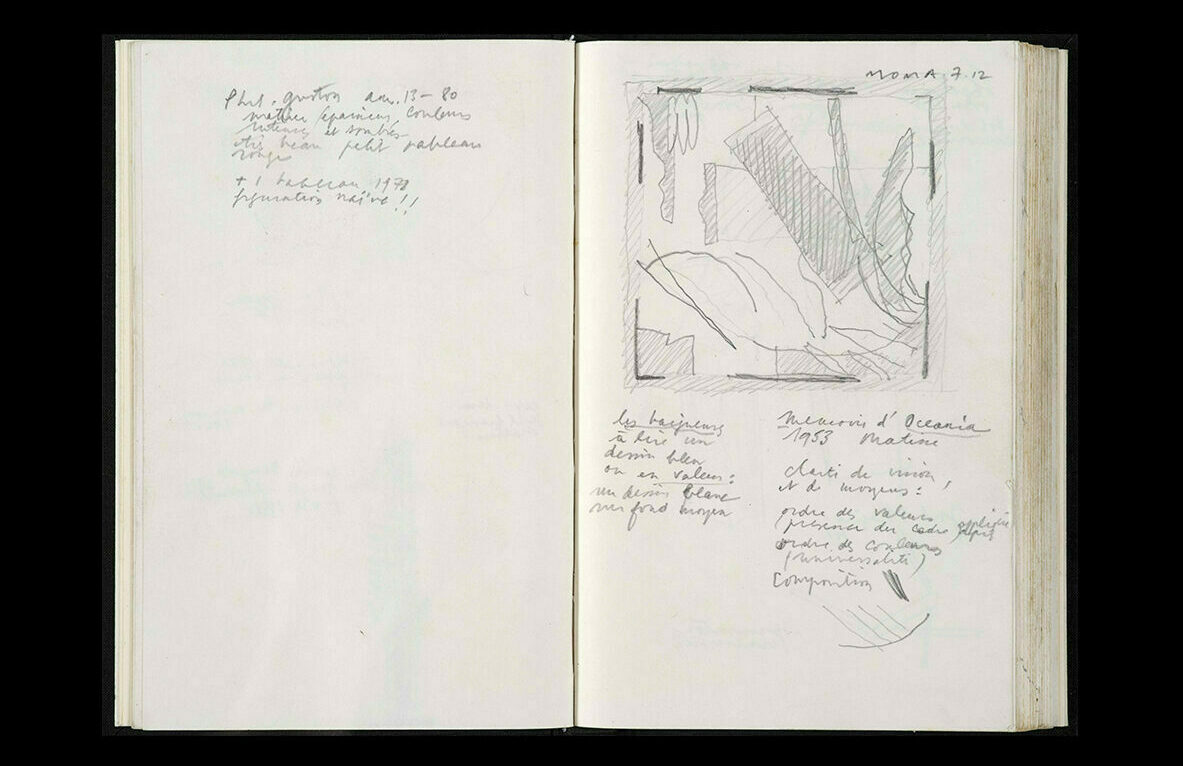 Phil. Guston am. 13 – 80
matière épaisseur, couleurs
intenses et sombres
très beau petit tableau
rouge
+ 1 tableau 1978
figuration naïve !!
MOMA 7.12
les baigneurs
à lire un
dessin bleu
ou en valeur :
un dessin blanc
sur fond moyen
Memoris d' Oceania
1953 Matisse
clarté de vision,
et de moyens :
ordre des valeurs
(présence du cadre
ordre des couleurs
(universalité)
Composition